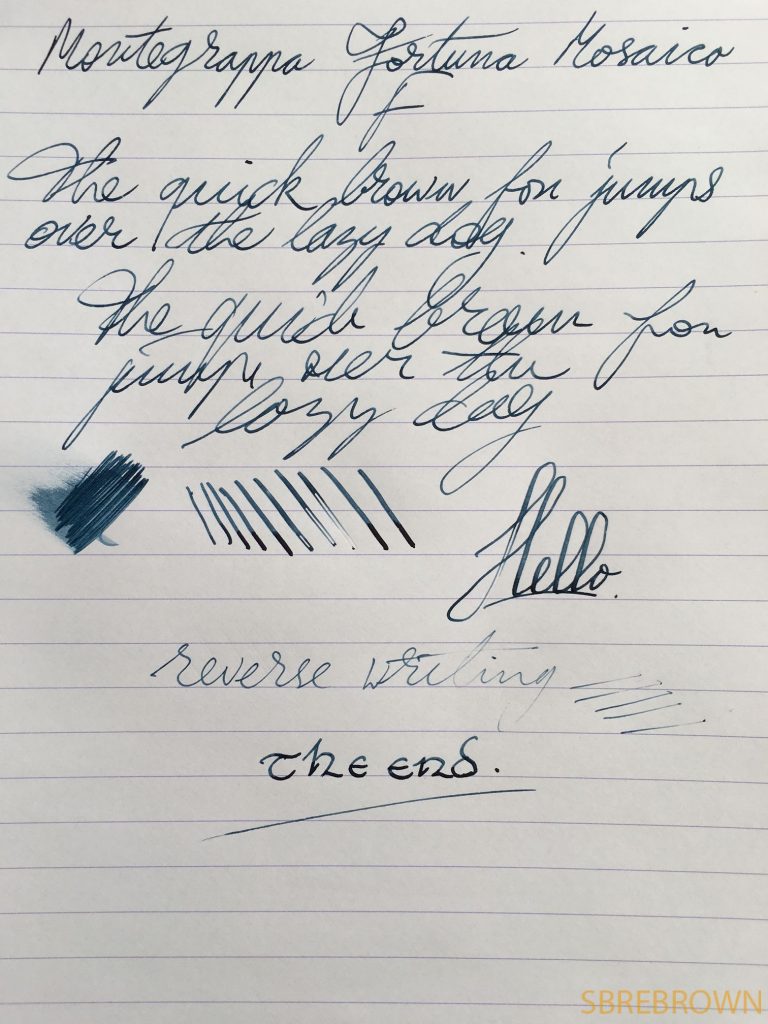 Montegrappa Fortuna Mosaico
F
The quick brown fox jumps
over the lazy dog.
The quick brown fox
jumps over the
lazy dog
Hello.
reverse writing
The end.
SBREBROWN